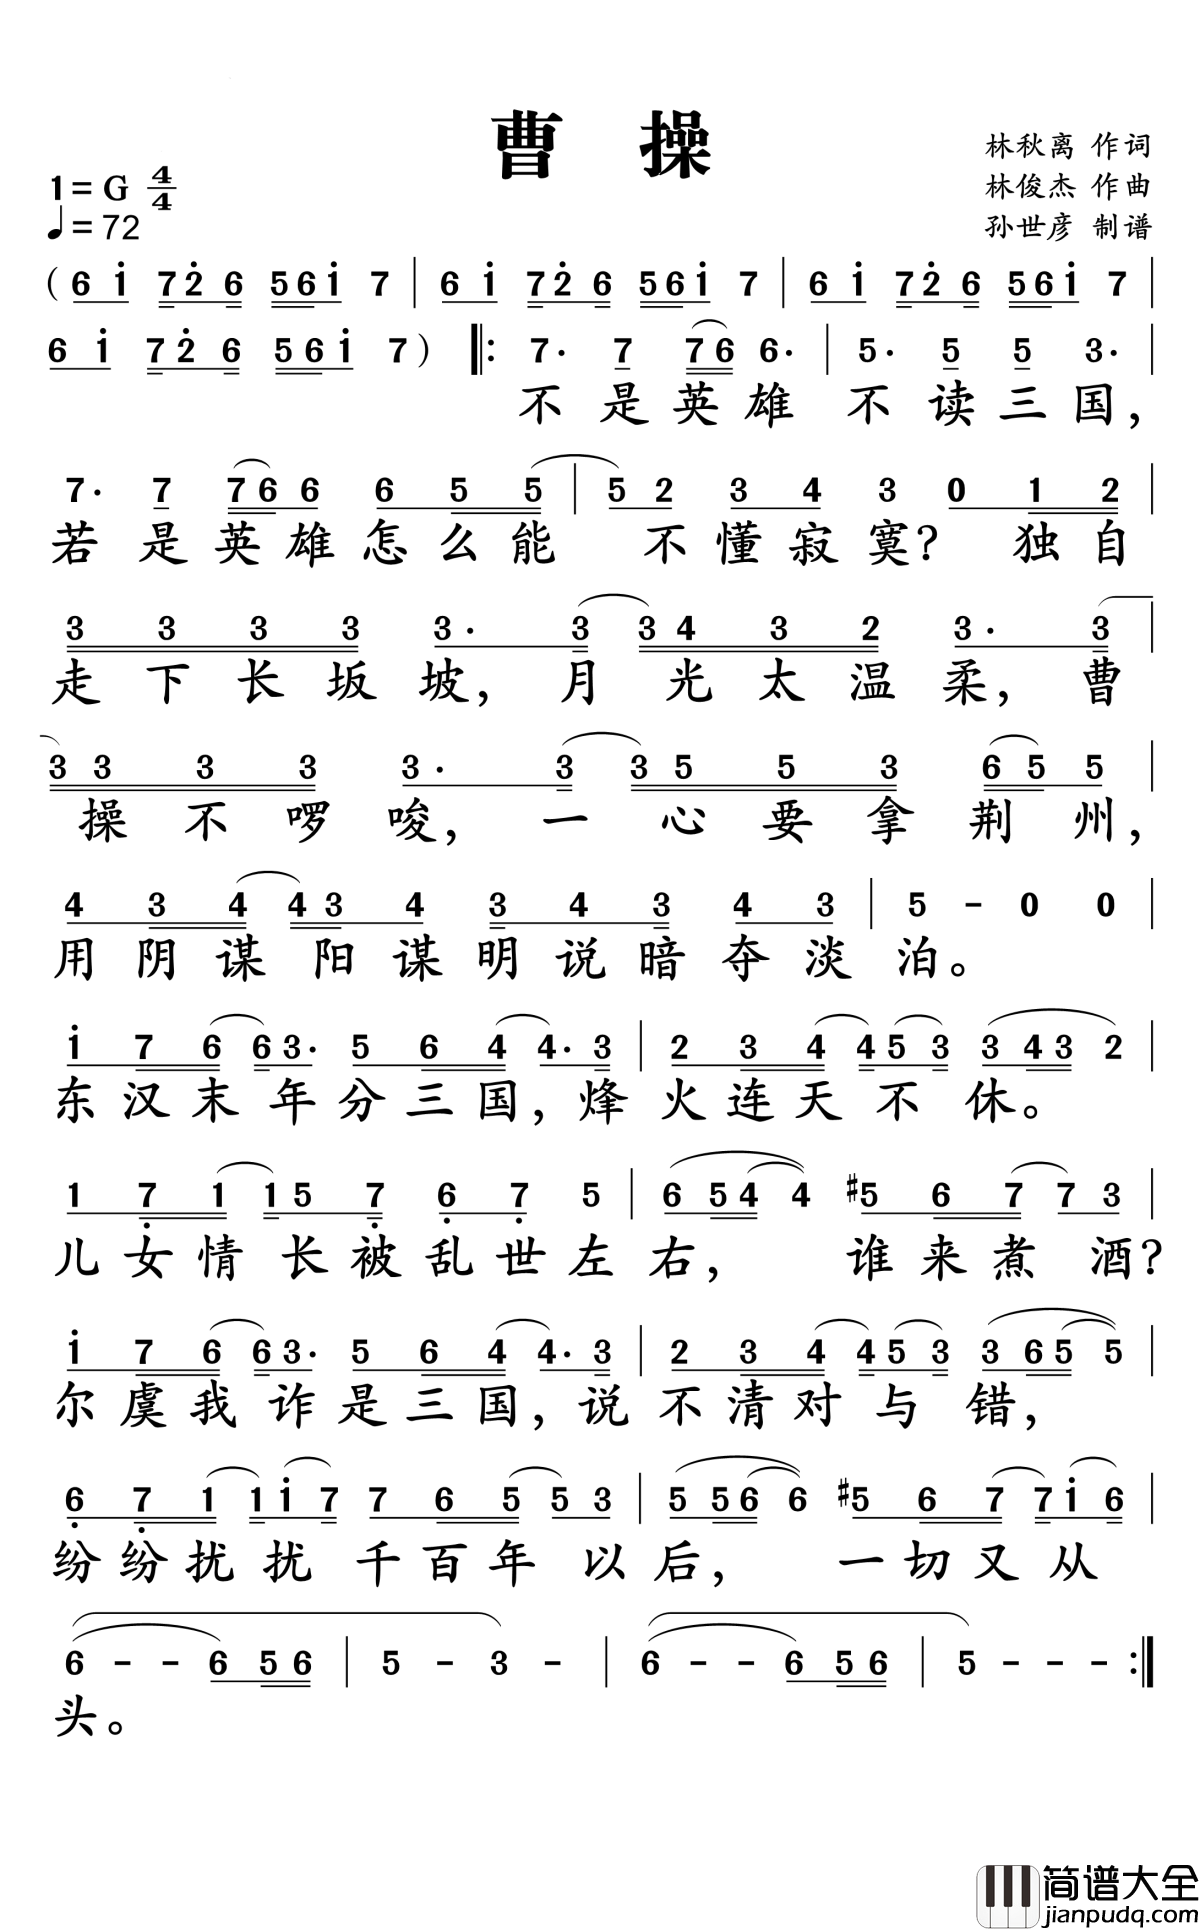 曹 操
林秋离 作词
林俊杰 作曲
孙世彦 制谱
1=G 4/4
♩=72
(6 1̇ 7 2̇ 6 5 6 1̇ 7 | 6 1̇ 7 2̇ 6 5 6 1̇ 7 | 6 1̇ 7 2̇ 6 5 6 1̇ 7 |
6 1̇ 7 2̇ 6 5 6 1̇ 7) ‖: 7· 7 7 6 6· | 5· 5 5 3· |
不是英雄 不读三国，
7· 7 7 6 6 6 5 5 | 5 2 3 4 3 0 1 2 |
若是英雄怎么能 不懂寂寞？ 独自
3 3 3 3 3· 3 3 4 3 2 3· 3 |
走下长坂坡，月光太温柔，曹
3 3 3 3 3· 3 3 5 5 3 6 5 5 |
操不啰唆，一心要拿荆州，
4 3 4 4 3 4 3 4 3 4 3 | 5 - 0 0 |
用阴谋阳谋明说暗夺淡泊。
1̇ 7 6 6 3· 5 6 4 4· 3 | 2 3 4 4 5 3 3 4 3 2 |
东汉末年分三国，烽火连天不休。
1 7̣ 1 1 5 7̣ 6̣ 7̣ 5 | 6 5 4 4 #5 6 7 7 3 |
儿女情长被乱世左右， 谁来煮酒？
1̇ 7 6 6 3· 5 6 4 4· 3 | 2 3 4 4 5 3 3 6 5 5 |
尔虞我诈是三国，说不清对与错，
6̣ 7̣ 1 1 1̇ 7 7 6 5 5 3 | 5 5 6 6 #5 6 7 7 1̇ 6 |
纷纷扰扰千百年以后， 一切又从
6 - - 6 5 6 | 5 - 3 - | 6 - - 6 5 6 | 5 - - - :‖
头。
简谱大全
jianpudq.com